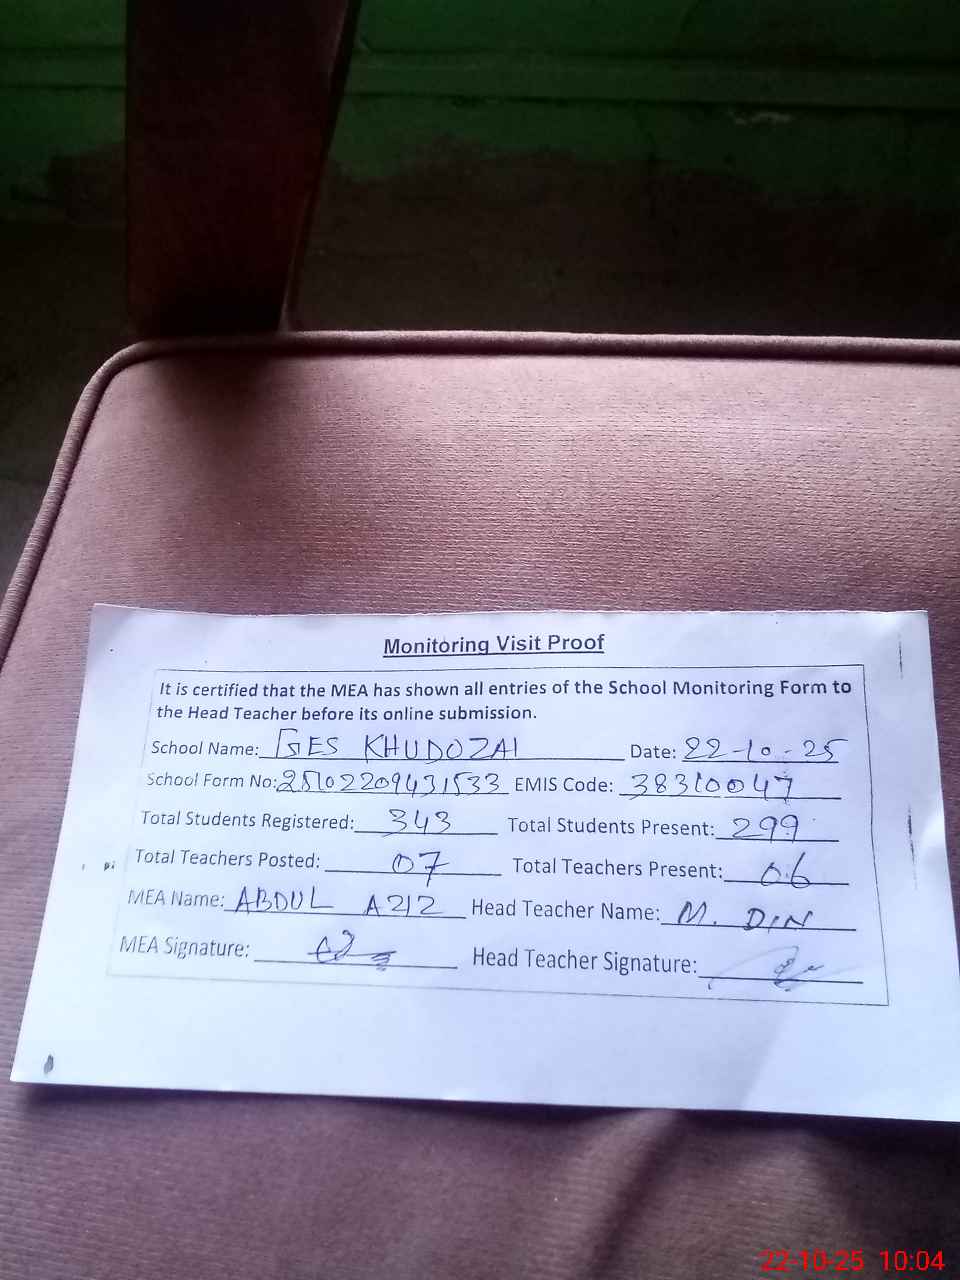 Monitoring Visit Proof
It is certified that the MEA has shown all entries of the School Monitoring Form to
the Head Teacher before its online submission.
School Name: GES KHUDOZAI Date: 22-10-25
School Form No: 25102209431533 EMIS Code: 38310047
Total Students Registered: 343 Total Students Present: 299
Total Teachers Posted: 07 Total Teachers Present: 06
MEA Name: ABDUL AZIZ Head Teacher Name: M. DIN
MEA Signature: Head Teacher Signature:
22-10-25 10:04